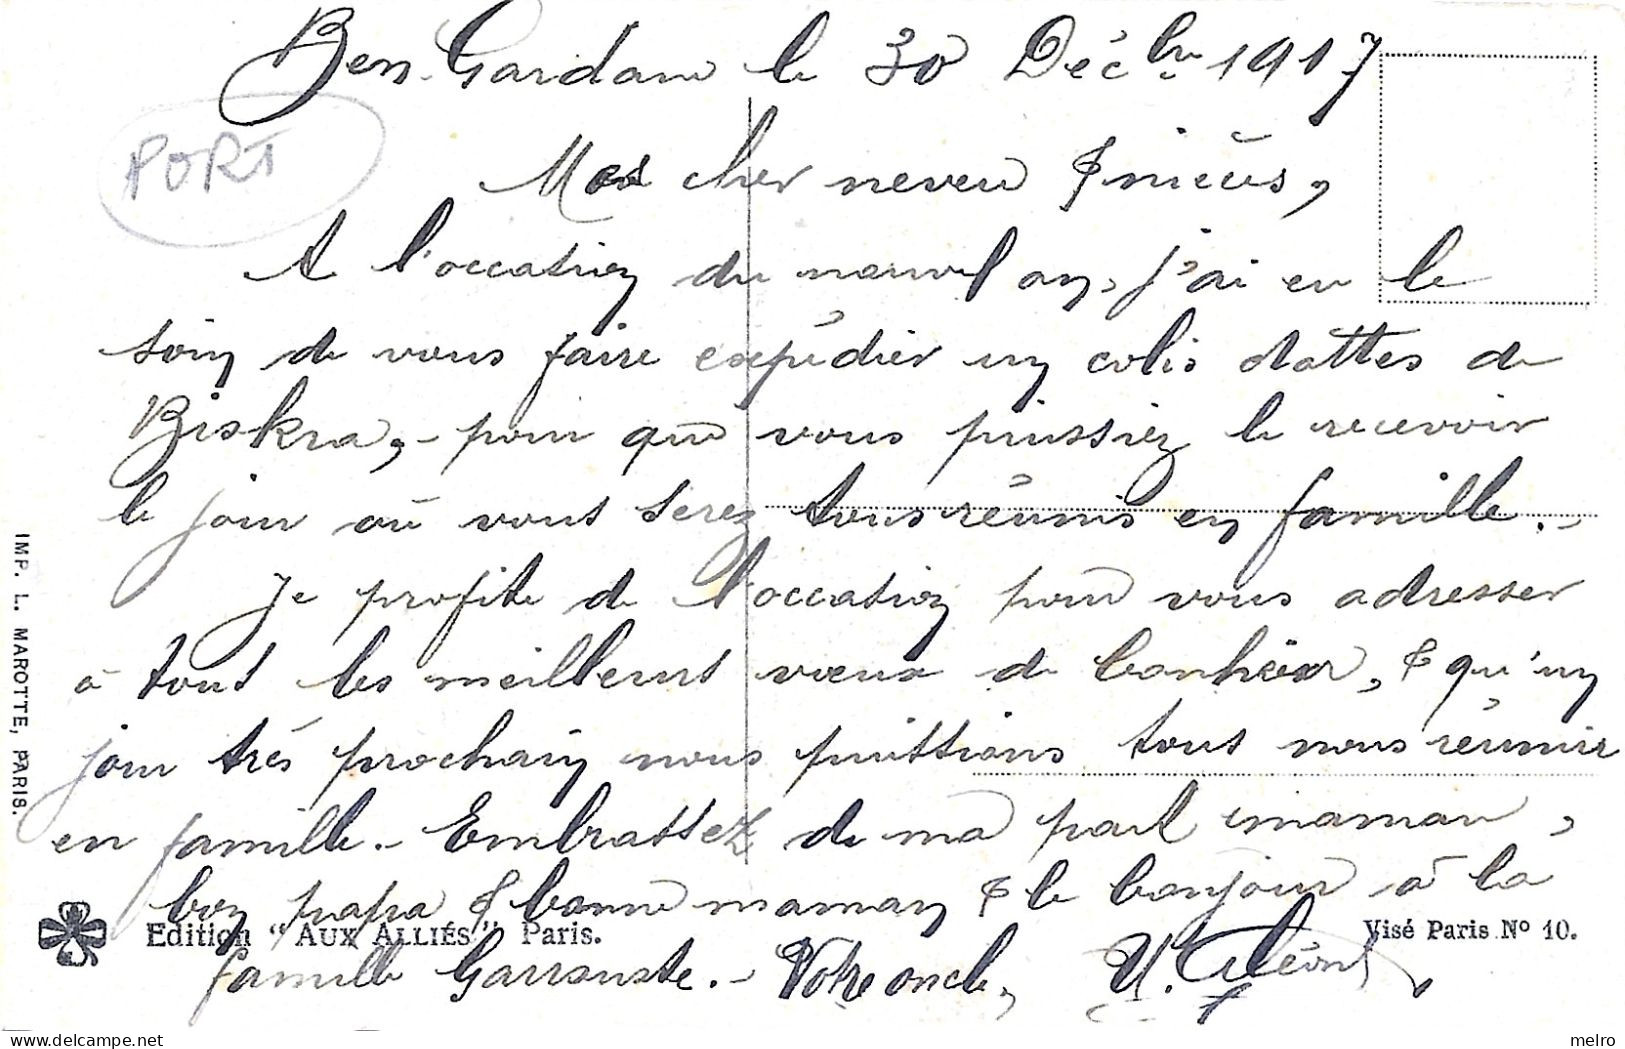 Ben-Gardane le 30 Décbre 1917
PORT
Mes cher neveu & nièces,
A l'occation du nouvel an, j'ai eu le
soin de vous faire expédier un colis dattes de
Biskra, - pour que vous puissiez le recevoir
le jour où vous serez tous réunis en famille. -
Je profite de l'occation pour vous adresser
à tout les meilleurs vœux de bonheur, & qu'un
jour très prochain nous puittions tout nous réunir
en famille. - Embrassez de ma part maman,
bon papa & bonne maman & le bonjour à la
Edition "AUX ALLIÉS" Paris.
Visé Paris Nº 10.
famille Garrouste. - Votre oncle, V. Léon
IMP. L. MAROTTE, PARIS.
delcampe.net
melro